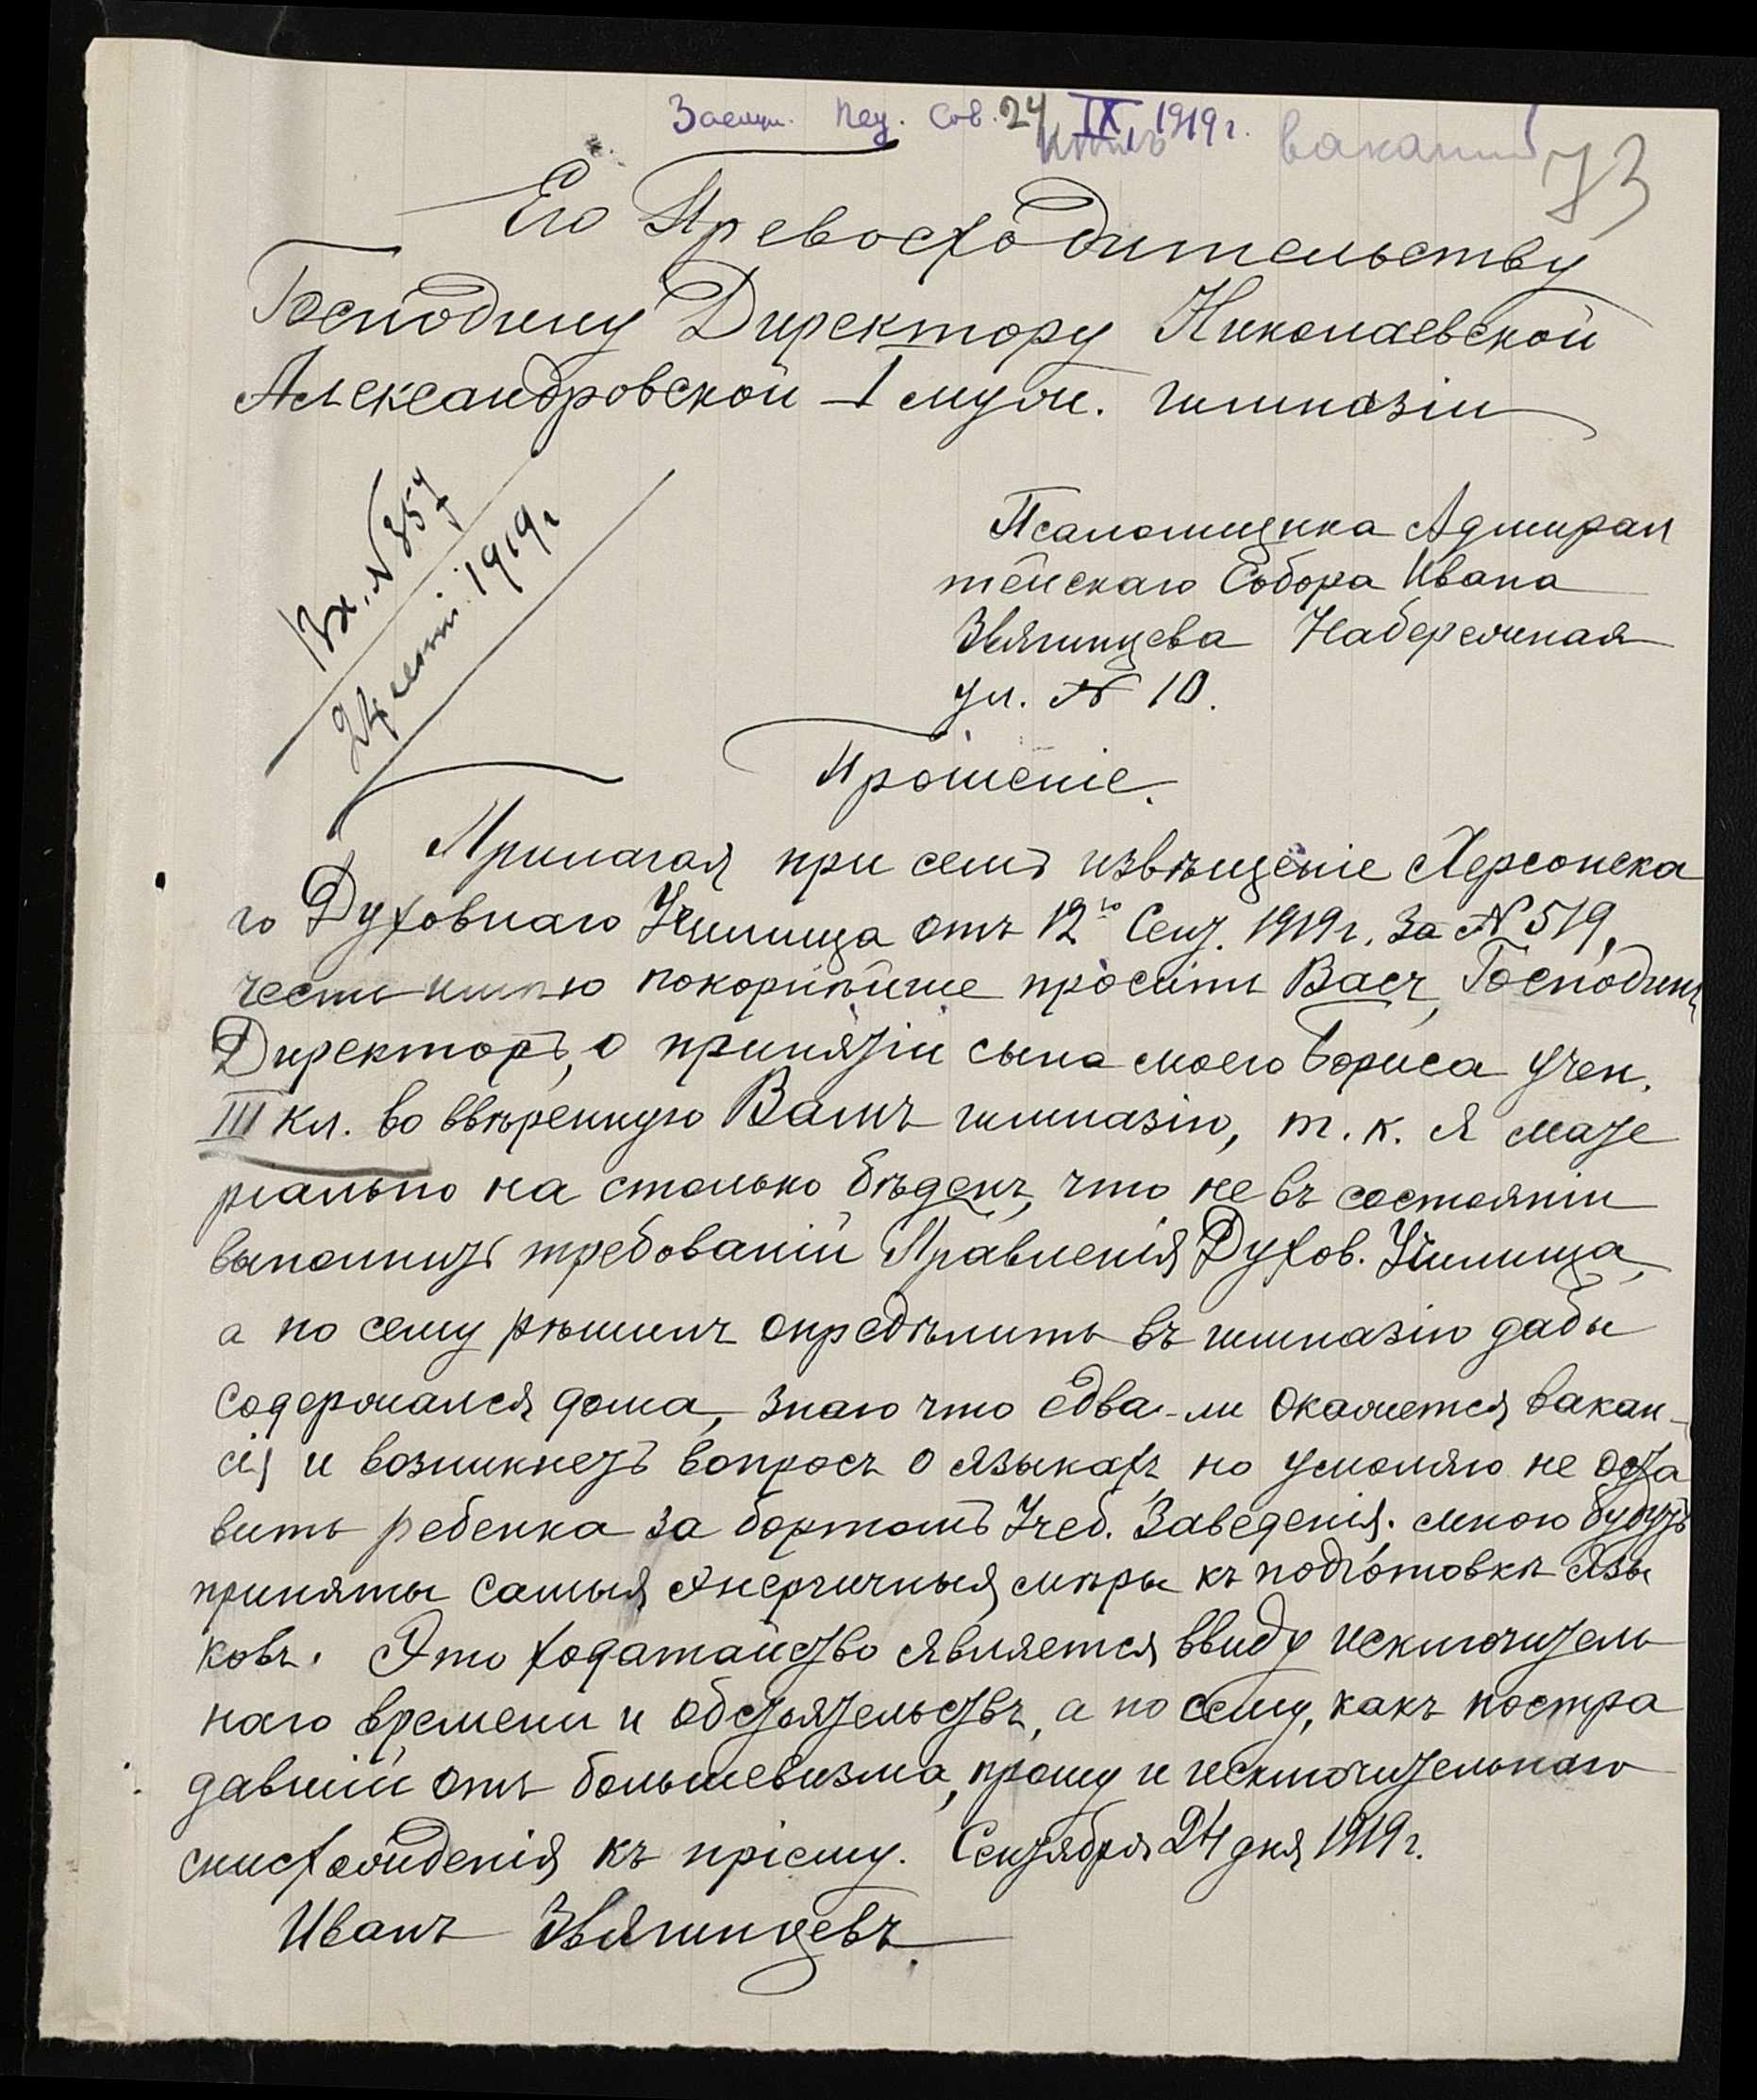 Засѣд. Пед. Сов. 24 IX 1919 г.
вакансій
73
Его Превосходительству
Господину Директору Николаевской
Александровской I муж. гимназіи
Вх. № 357
24 сент. 1919 г
Псаломщика Адмирал
тейскаго Собора Ивана
Звягинцева Набережная
ул. № 10.
Прошеніе.
Прилагая при семъ извѣщеніе Херсонска
го Духовнаго Училища отъ 12го Сент. 1919 г. за № 519,
честь имѣю покорнѣйше просить Васъ, Господинъ
Директоръ, о принятіи сына моего Бориса учен.
III кл. во ввѣренную Вамъ гимназію, т. к. я мате
ріально на столько бѣденъ, что не въ состояніи
выполнить требованій Правленія Духов. Училища,
а по сему рѣшилъ опредѣлить въ гимназію дабы
содержался дома, знаю что едва-ли окажется вакан-
сія и возникнетъ вопросъ о языкахъ, но умоляю не оста
вить ребенка за бортомъ Учеб. Заведенія. мною будутъ
приняты самыя энергичныя мѣры къ подготовкѣ язы
ковъ. Это ходатайство является ввиду исключитель
наго времени и обстоятельствъ, а по сему, какъ постра
давшій отъ большевизма, прошу и исключительнаго
снисхожденія къ пріему. Сентября 24 дня 1919 г.
Иванъ Звягинцевъ.